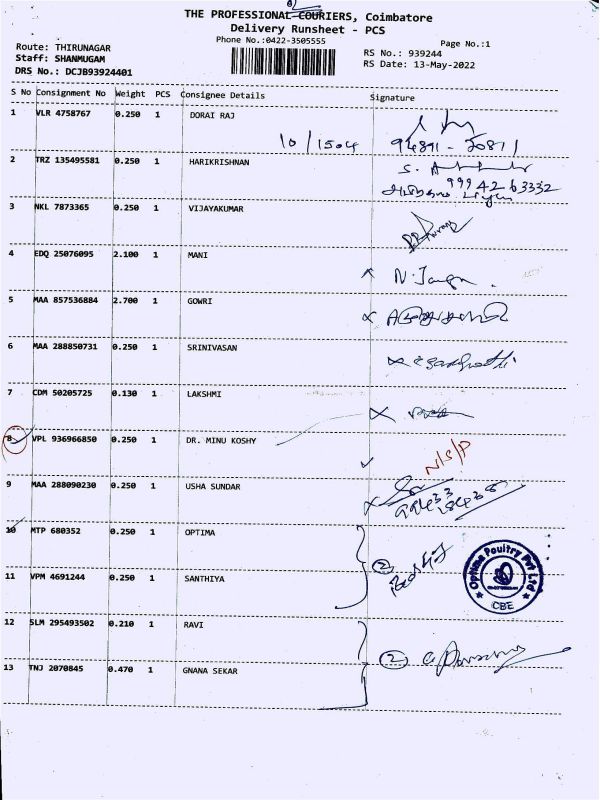 THE PROFESSIONAL COURIERS, Coimbatore
Delivery Runsheet - PCS
Phone No.:0422-3505555
Page No.:1
Route: THIRUNAGAR
Staff: SHANMUGAM
DRS No.: DCJB93924401
RS No.: 939244
RS Date: 13-May-2022
S No Consignment No Weight PCS Consignee Details Signature
1 VLR 4758767 0.250 1 DORAI RAJ
10/1504 94891-20871
2 TRZ 135495581 0.250 1 HARIKRISHNAN
99942 63332
3 NKL 7873365 0.250 1 VIJAYAKUMAR
4 EDQ 25076095 2.100 1 MANI
5 MAA 857536884 2.700 1 GOWRI
6 MAA 288850731 0.250 1 SRINIVASAN
7 CDM 50205725 0.130 1 LAKSHMI
8 VPL 936966850 0.250 1 DR. MINU KOSHY
N/S/P
9 MAA 288090230 0.250 1 USHA SUNDAR
10 MTP 680352 0.250 1 OPTIMA
2
Optima Poultry Pvt Ltd
CBE
11 VPM 4691244 0.250 1 SANTHIYA
12 SLM 295493502 0.210 1 RAVI
2
13 TNJ 2070845 0.470 1 GNANA SEKAR